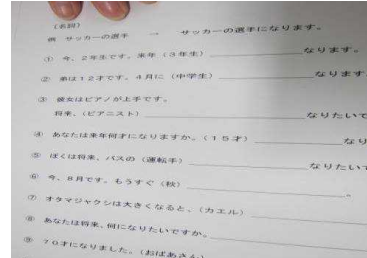 (名詞)
例 サッカーの選手 → サッカーの選手になります。
① 今、2年生です。来年（3年生）____________なります。
② 弟は12才です。4月に（中学生）____________なります
③ 彼女はピアノが上手です。
将来、（ピアニスト）____________なりたいで
④ あなたは来年何才になりますか。（15才）____________なり
⑤ ぼくは将来、バスの（運転手）____________なりたいで
⑥ 今、8月です。もうすぐ（秋）____________。
⑦ オタマジャクシは大きくなると、（カエル）____________
⑧ あなたは将来、何になりたいですか。____________
⑨ 70才になりました。（おばあさん）